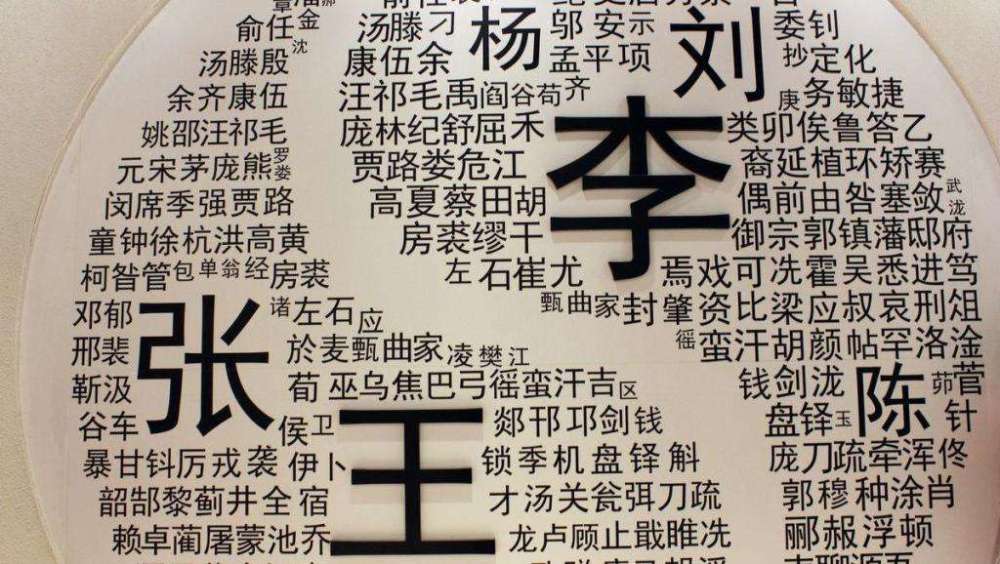 俞任金
汤滕刁
杨
邬安示
刘
委钊
沈
汤滕殷
康伍余
孟平项
抄定化
余齐康伍
汪祁毛禹阎谷荀齐
庚务敏捷
姚邵汪祁毛
庞林纪舒屈禾
李
类卯俟鲁答乙
元宋茅庞熊罗娄
贾路娄危江
裔延植环矫赛
闵席季强贾路
高夏蔡田胡
偶前由昝塞敛武泷
童钟徐杭洪高黄
房裘缪干
御宗郭镇藩邸府
柯昝管包单翁经房裘
左石崔尤
焉戏可冼霍吴悉进笃
邓郁
张
诸左石应
甄曲家封肇资比梁应叔哀刑俎
邢裴
於麦甄曲家凌樊江
徭蛮汗胡颜帖罕洛淦
靳汲
荀巫乌焦巴弓徭蛮汗吉区
钱剑泷
陈
茆菅
谷车
侯卫
王
郯邗邛剑钱
盘铎玉
针
暴甘钭厉戎袭伊卜
锁季机盘铎斛
庞刀疏牵浑佟
韶郜黎蓟井全宿
才汤关瓮弭刀疏
郭穆种涂肖
赖卓蔺屠蒙池乔
龙卢顾止戢睢冼
郦赧浮顿